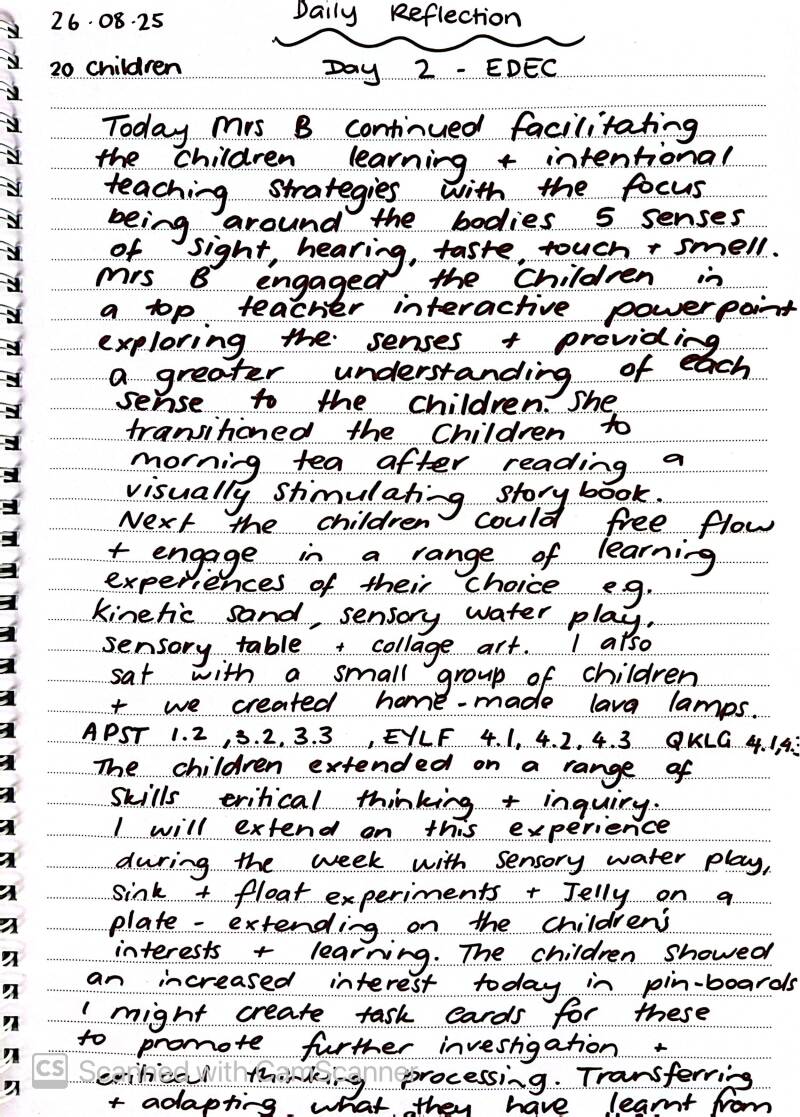 26.08.25 Daily Reflection
20 children Day 2 - EDEC
Today Mrs B continued facilitating
the children learning + intentional
teaching strategies with the focus
being around the bodies 5 senses
of sight, hearing, taste, touch + smell.
Mrs B engaged the children in
a top teacher interactive powerpoint
exploring the senses + providing
a greater understanding of each
sense to the children. She
transitioned the children to
morning tea after reading a
visually stimulating story book.
Next the children could free flow
+ engage in a range of learning
experiences of their choice e.g.
kinetic sand, sensory water play,
sensory table + collage art. I also
sat with a small group of children
+ we created home-made lava lamps.
APST 1.2, 3.2, 3.3, EYLF 4.1, 4.2, 4.3 QKLG 4.1,
The children extended on a range of
skills critical thinking + inquiry.
I will extend on this experience
during the week with sensory water play,
sink + float experiments + Jelly on a
plate - extending on the children's
interests + learning. The children showed
an increased interest today in pin-boards
I might create task cards for these
to promote further investigation +
critical thinking processing. Transferring
+ adapting what they have learnt from
CS Scanned with CamScanner